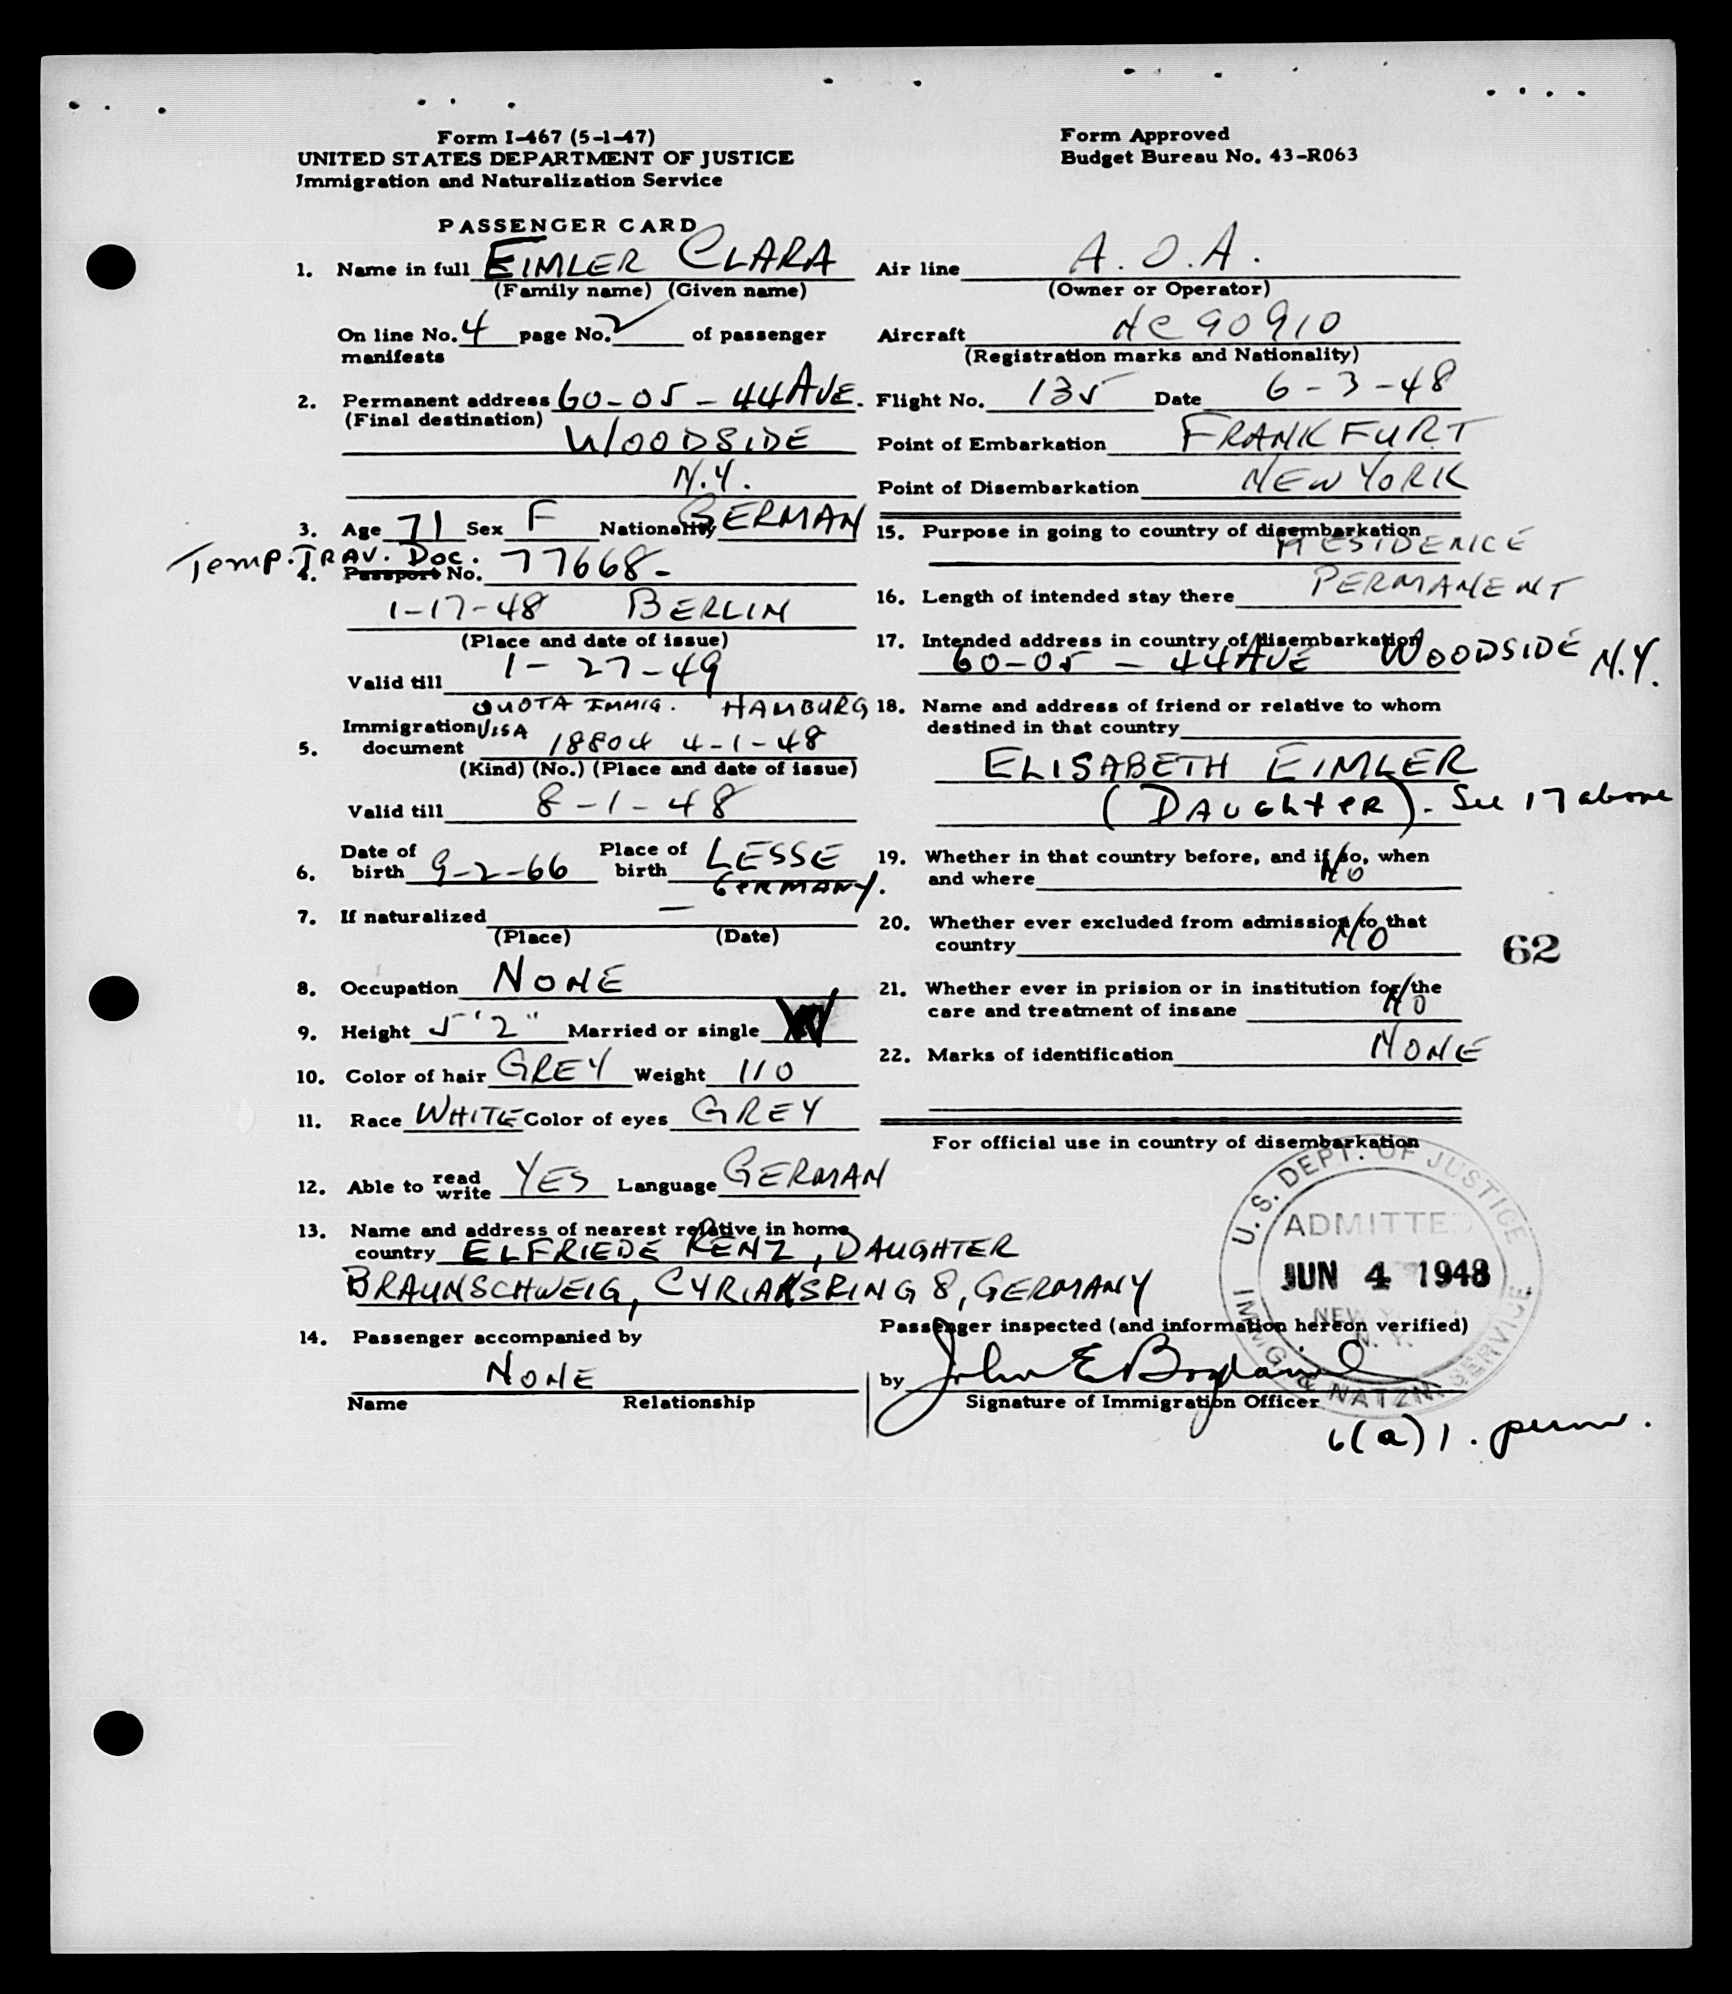 Form I-467 (5-1-47)
UNITED STATES DEPARTMENT OF JUSTICE
Immigration and Naturalization Service
Form Approved
Budget Bureau No. 43-R063
PASSENGER CARD
1. Name in full EIMLER CLARA
(Family name) (Given name)
On line No. 4 page No. 2 of passenger
manifests
2. Permanent address 60-05-44 AVE.
(Final destination)
WOODSIDE
N.Y.
3. Age 71 Sex F Nationality GERMAN
Temp. TRAV. DOC.
4. Passport No. 77668-
1-17-48 BERLIN
(Place and date of issue)
Valid till 1-27-49
QUOTA IMMIG. HAMBURG
Immigration VISA
5. document 18804 4-1-48
(Kind) (No.) (Place and date of issue)
Valid till 8-1-48
6. Date of birth 9-2-66 Place of birth LESSE
GERMANY.
7. If naturalized —
(Place) (Date)
8. Occupation NONE
9. Height 5'2" Married or single W
10. Color of hair GREY Weight 110
11. Race WHITE Color of eyes GREY
12. Able to read write YES Language GERMAN
13. Name and address of nearest relative in home
country ELFRIEDE RENZ, DAUGHTER
BRAUNSCHWEIG, CYRIAKSRING 8, GERMANY
14. Passenger accompanied by
NONE
Name Relationship
Air line A.O.A.
(Owner or Operator)
Aircraft NC 90910
(Registration marks and Nationality)
Flight No. 135 Date 6-3-48
Point of Embarkation FRANKFURT
Point of Disembarkation NEW YORK
15. Purpose in going to country of disembarkation
RESIDENCE
16. Length of intended stay there PERMANENT
17. Intended address in country of disembarkation
60-05-44 AVE WOODSIDE N.Y.
18. Name and address of friend or relative to whom
destined in that country
ELISABETH EIMLER
(DAUGHTER). See 17 above
19. Whether in that country before, and if so, when
and where NO
20. Whether ever excluded from admission to that
country NO
62
21. Whether ever in prision or in institution for the
care and treatment of insane NO
22. Marks of identification NONE
For official use in country of disembarkation
U.S. DEPT. OF JUSTICE
ADMITTED
JUN 4 1948
NEW YORK
N. Y.
IMMIG. & NATZN. SERVICE
Passenger inspected (and information hereon verified)
by John E
Signature of Immigration Officer
6(a)1. perm.